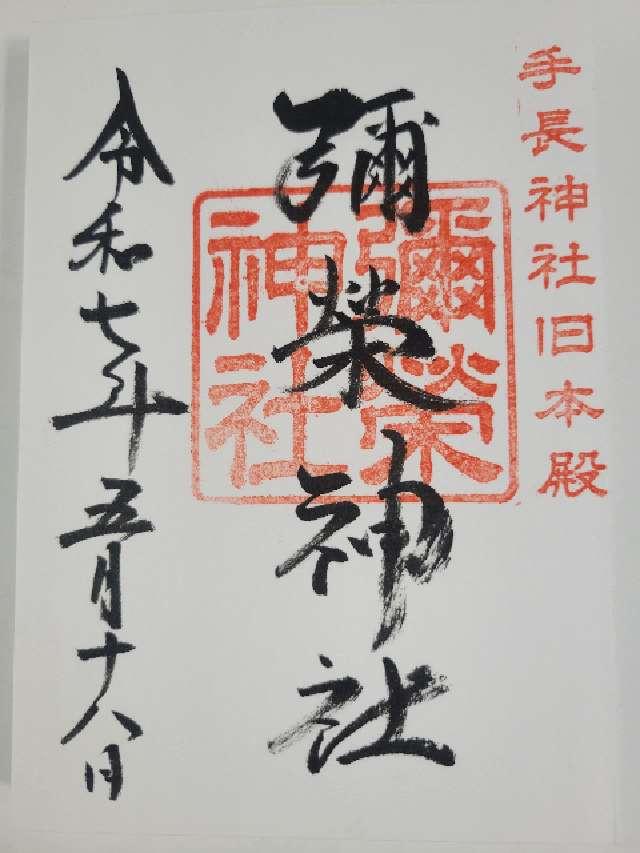 手長神社旧本殿
彌榮神社
彌榮
神社
令和七年五月十八日